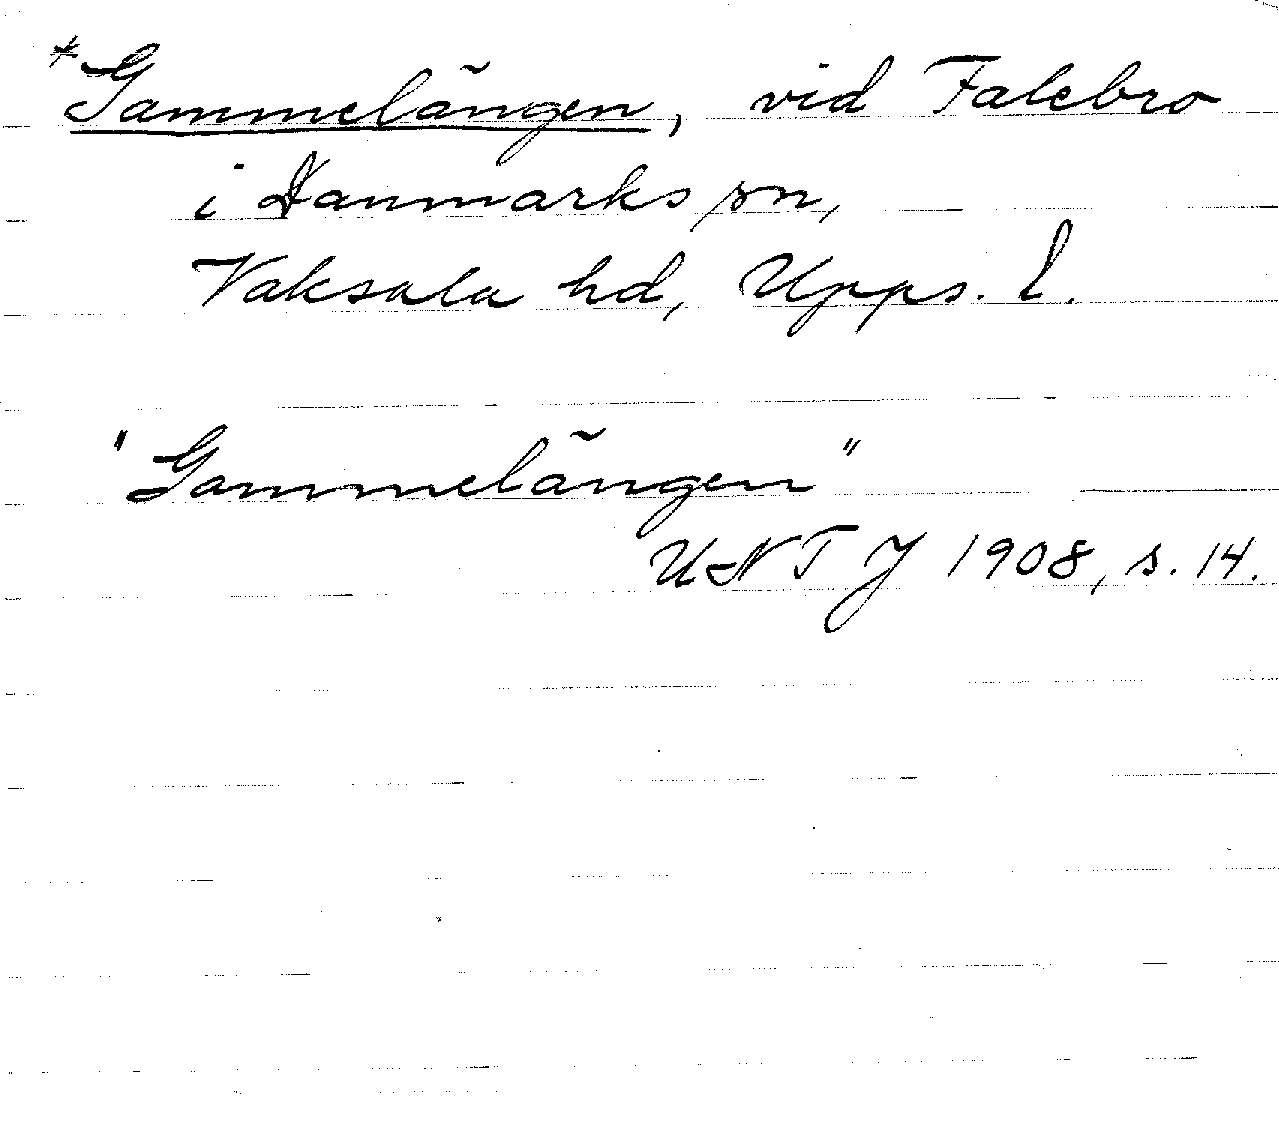 *Gammelängen, vid Falebro
i Danmarks sn,
Vaksala hd, Upps. l.
"Gammelängen"
UNTJ 1908, s. 14.